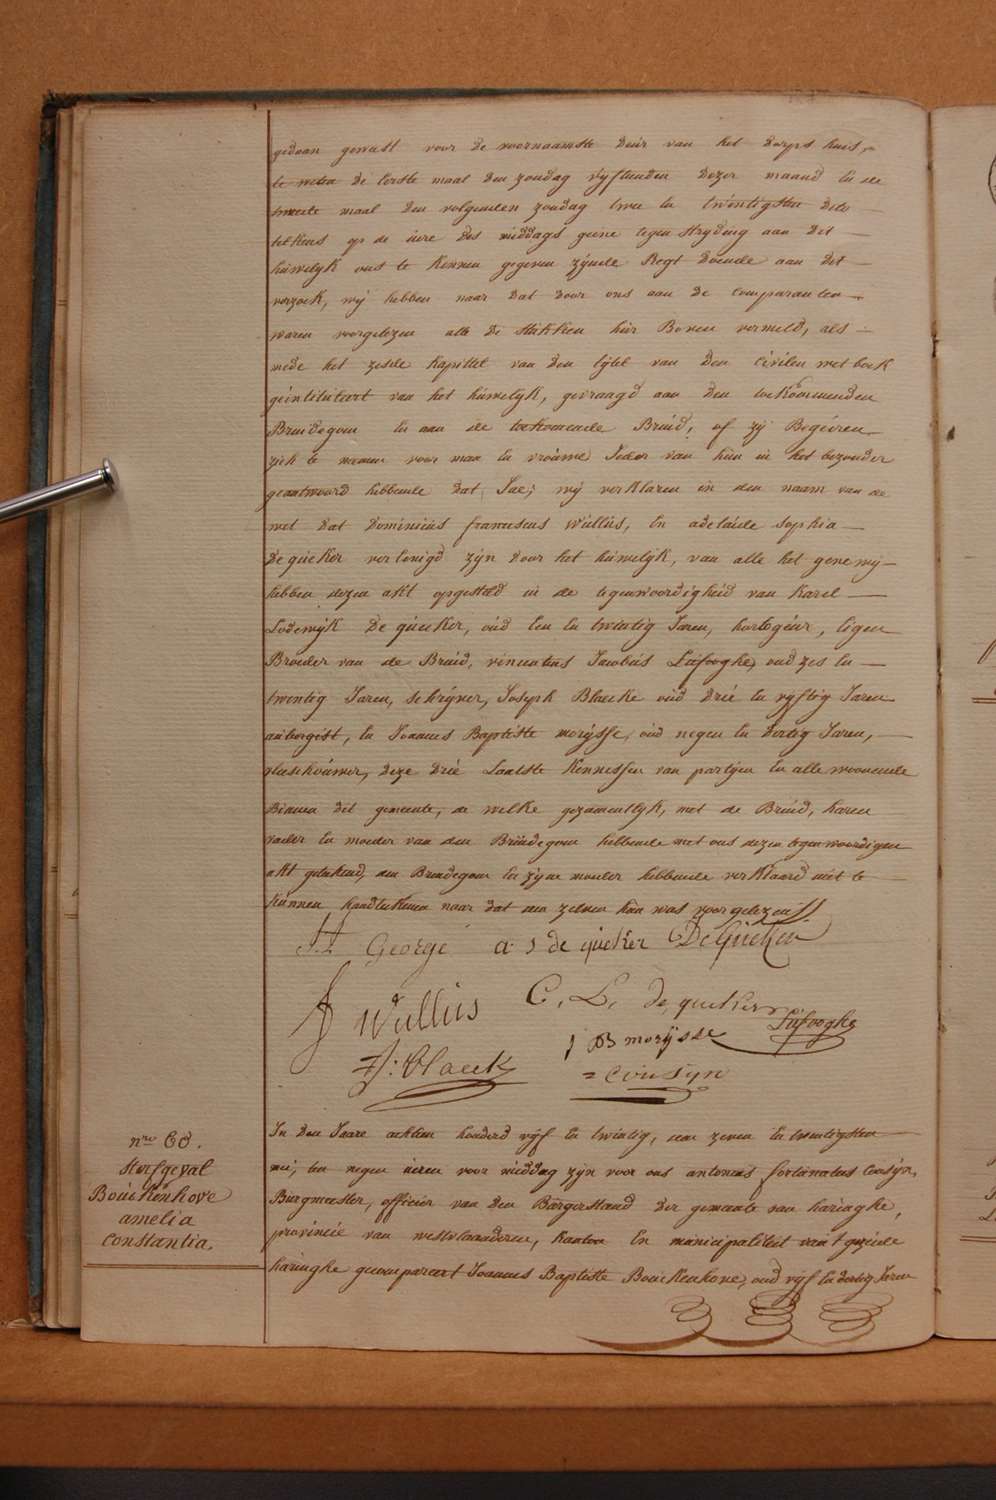 gedaan geweest voor de voornaamste deúr van het dorps huis,
te weten de eerste maal den zondag vyftienden dezer maand en de
tweede maal den volgenden zondag twee en twintigsten dito
telkens op de úere des middags geene tegen stryding aan dit
húwelyk ons te kennen gegeven zÿnde Regt doende aan dit
verzoek, wÿ hebben naar dat door ons aan de comparanten
waren voorgelezen alle de stukken hier Boven vermeld, als
mede het zesde kapittel van den tÿtel van den civilen wet boek
geintituleert van het húwelyk, gevraagd aan den toekoomenden
Bruidegom en aan de toekomende Brúid, of zÿ Begeiren
zich te nemen voor man en vroúwe Ieder van hun in het bezonder
geantwoord hebbende dat, Jae; wÿ verklaren in den naam van de
wet dat dominicús franciscus Wúllús, en adelaïde sophia
De queker vereenigd zÿn door het húwelyk, van alle het gene wÿ
hebben dezen akt opgesteld in de tegenwoordigheid van Karel
Lodewÿk De qúeker, oúd een en twintig Jaren, horlogiúr, eigen
Broeder van de Brúid, vincentius Jacobús Lúfooghe, oud zes en
twintig Jaren, schrÿver, Joseph Blaeke oúd drie en vyftig Jaren
aúbergist, en Joannes Baptiste morÿsse, oud negen en dertig Jaren,
, deze drie Laatste Kennissen van partÿen en alle woonende
Binnen dit gemeente, de welke gezamentlyk, met de Brúid, haren
vader en moeder van den Brúidegom hebbende met ons dezen tegenwoordigen
akt getekend, den Bruidegom en zÿne moeder hebbende verklaard niet te
kúnnen handtekenen naar dat aen zelven hún was voorgelezen
George a: s de qúeker DeQúeker
Wúllús C. L. de queker Lúfooghe
Blaeck J B morÿsse
= Cousyn
nro 60.
sterfgeval
Boúckenhove
amelia
constantia.
In den Jaare achtien honderd vÿf en twintig, den zeven en twintigsten
mei, ten negen úeren voor middag zÿn voor ons antonius fortunatus Coúsÿn,
Búrgmeester, officier van den Búrgerstand der gemeente van haringhe,
provincie van westvlaanderen, kanton en municipaliteit van 't gezeide
haringhe gecompareert Joannes Baptiste Boúckenhove, oud vÿf en dertig Jaren